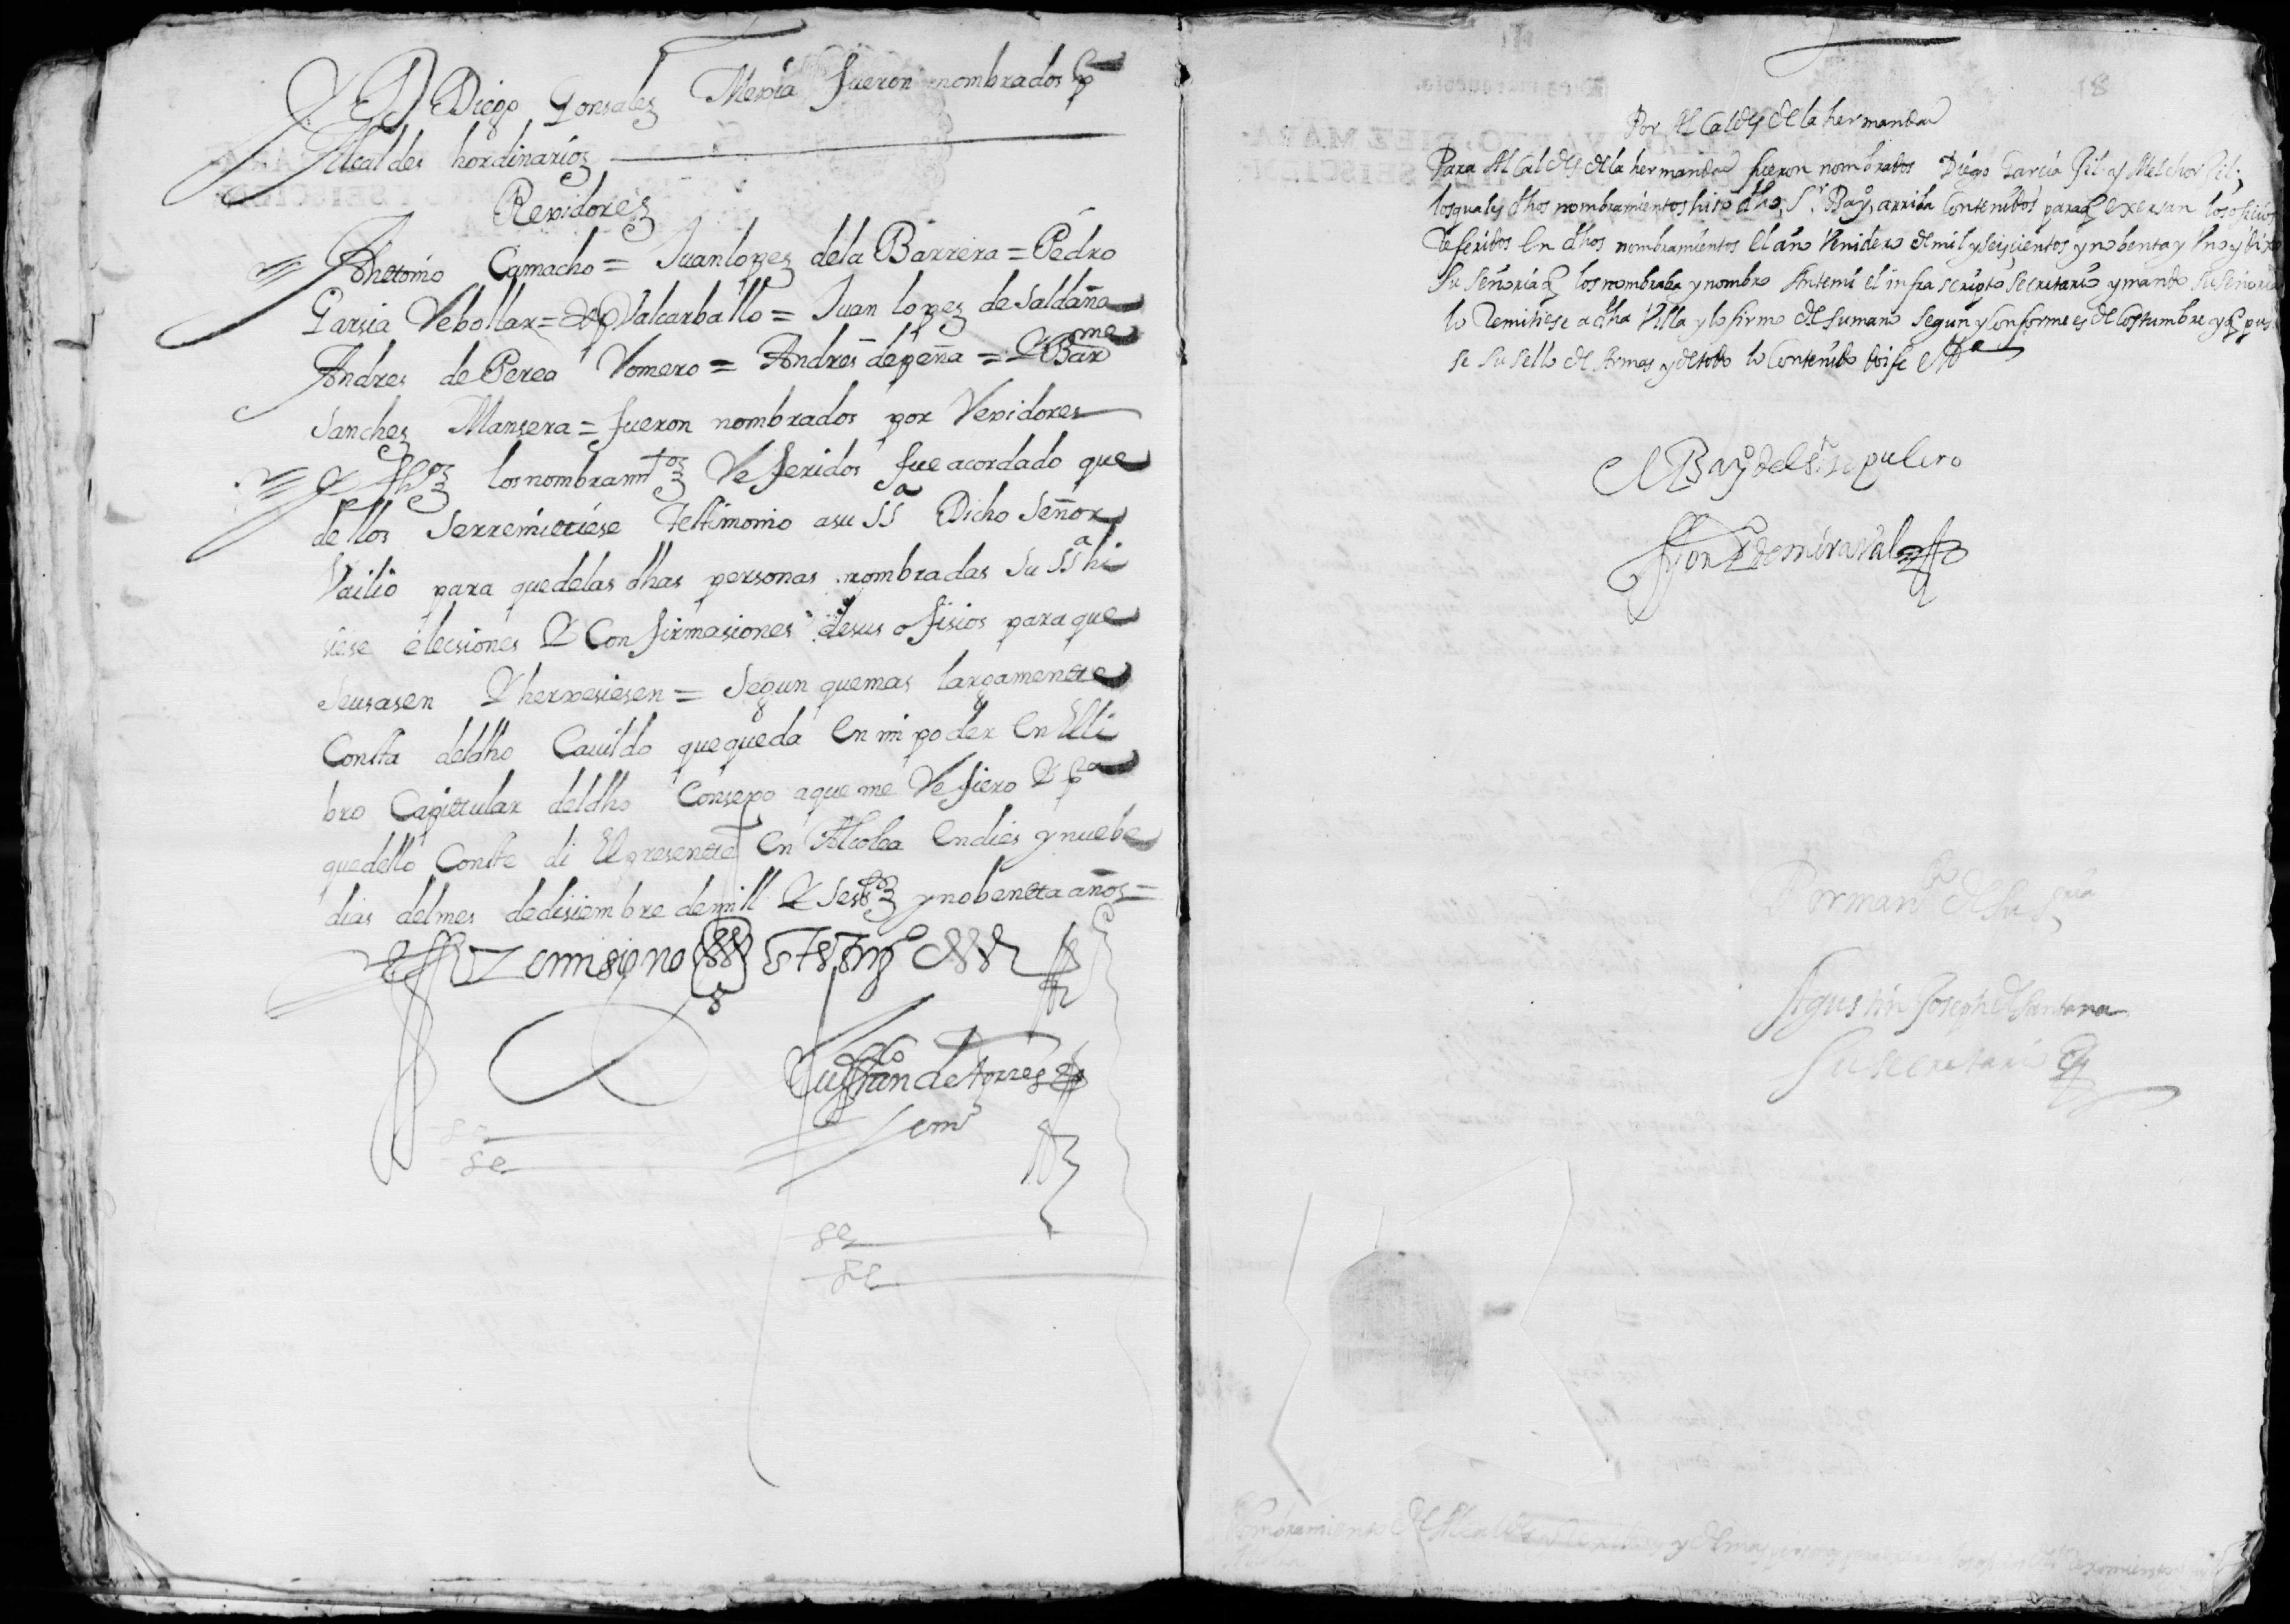 Y D Diego Gonsales Mexia fueron nombrados pr
Alcaldes hordinarios
Rexidores
Anttonio Camacho = Juan lopez de la Barrera = Pedro
Garsia Rebollar = Valcarballo = Juan lopez de Saldaña
Andres de Perea Romero = Andres de peña = Y Barme
Sanchez Mansera = fueron nombrados por Rexidores
Y hhos los nombramtos Referidos fue acordado que
dellos Serremittiese Testimonio a su SSa Dicho Señor
Vailio para que de las dhas personas nombradas Su SSa hi
siese elecsiones Y Confirmasiones de sus ofisios para que
Seusasen Y herxesiesen = Segun que mas largamentte
Consta del dho Cauildo que queda En mi poder En El li
bro Capittular del dho Consexo a que me Refiero Y pa
que dello Conste di El presentte En Alcolea En dies y nuebe
dias del mes de disiembre de mill Y Sesstos y nobentta años =
mi signo en testimo
Juan de torres
Por Alcaldes de la hermandad
Para Alcaldes de la hermandad fueron nombrados Diego Garcia Gil y Melchor Gil;
los quales dhos nombramientos hiso dho Sr. Bayo arriba Contenidos para q exersan los oficios
Referidos En dhos nombramientos El año Venidero de mil y seiscientos y nobenta y Uno y dixo
Su Señoria q los nombraba y nombro Ante mi el infra scripto Secretario y mando Su Señoria
lo Remitiese a dha Villa y lo firmo de su mano Segun y Conforme es de Costumbre y q pus
se Su Sello de Armas y de todo lo Contenido doi fe
El Bayo del Sto Sepulcro
de miraval
Por mando de Su Sria
Agustin Joseph de Santana
Su secretario
Nombramiento de Alcaldes